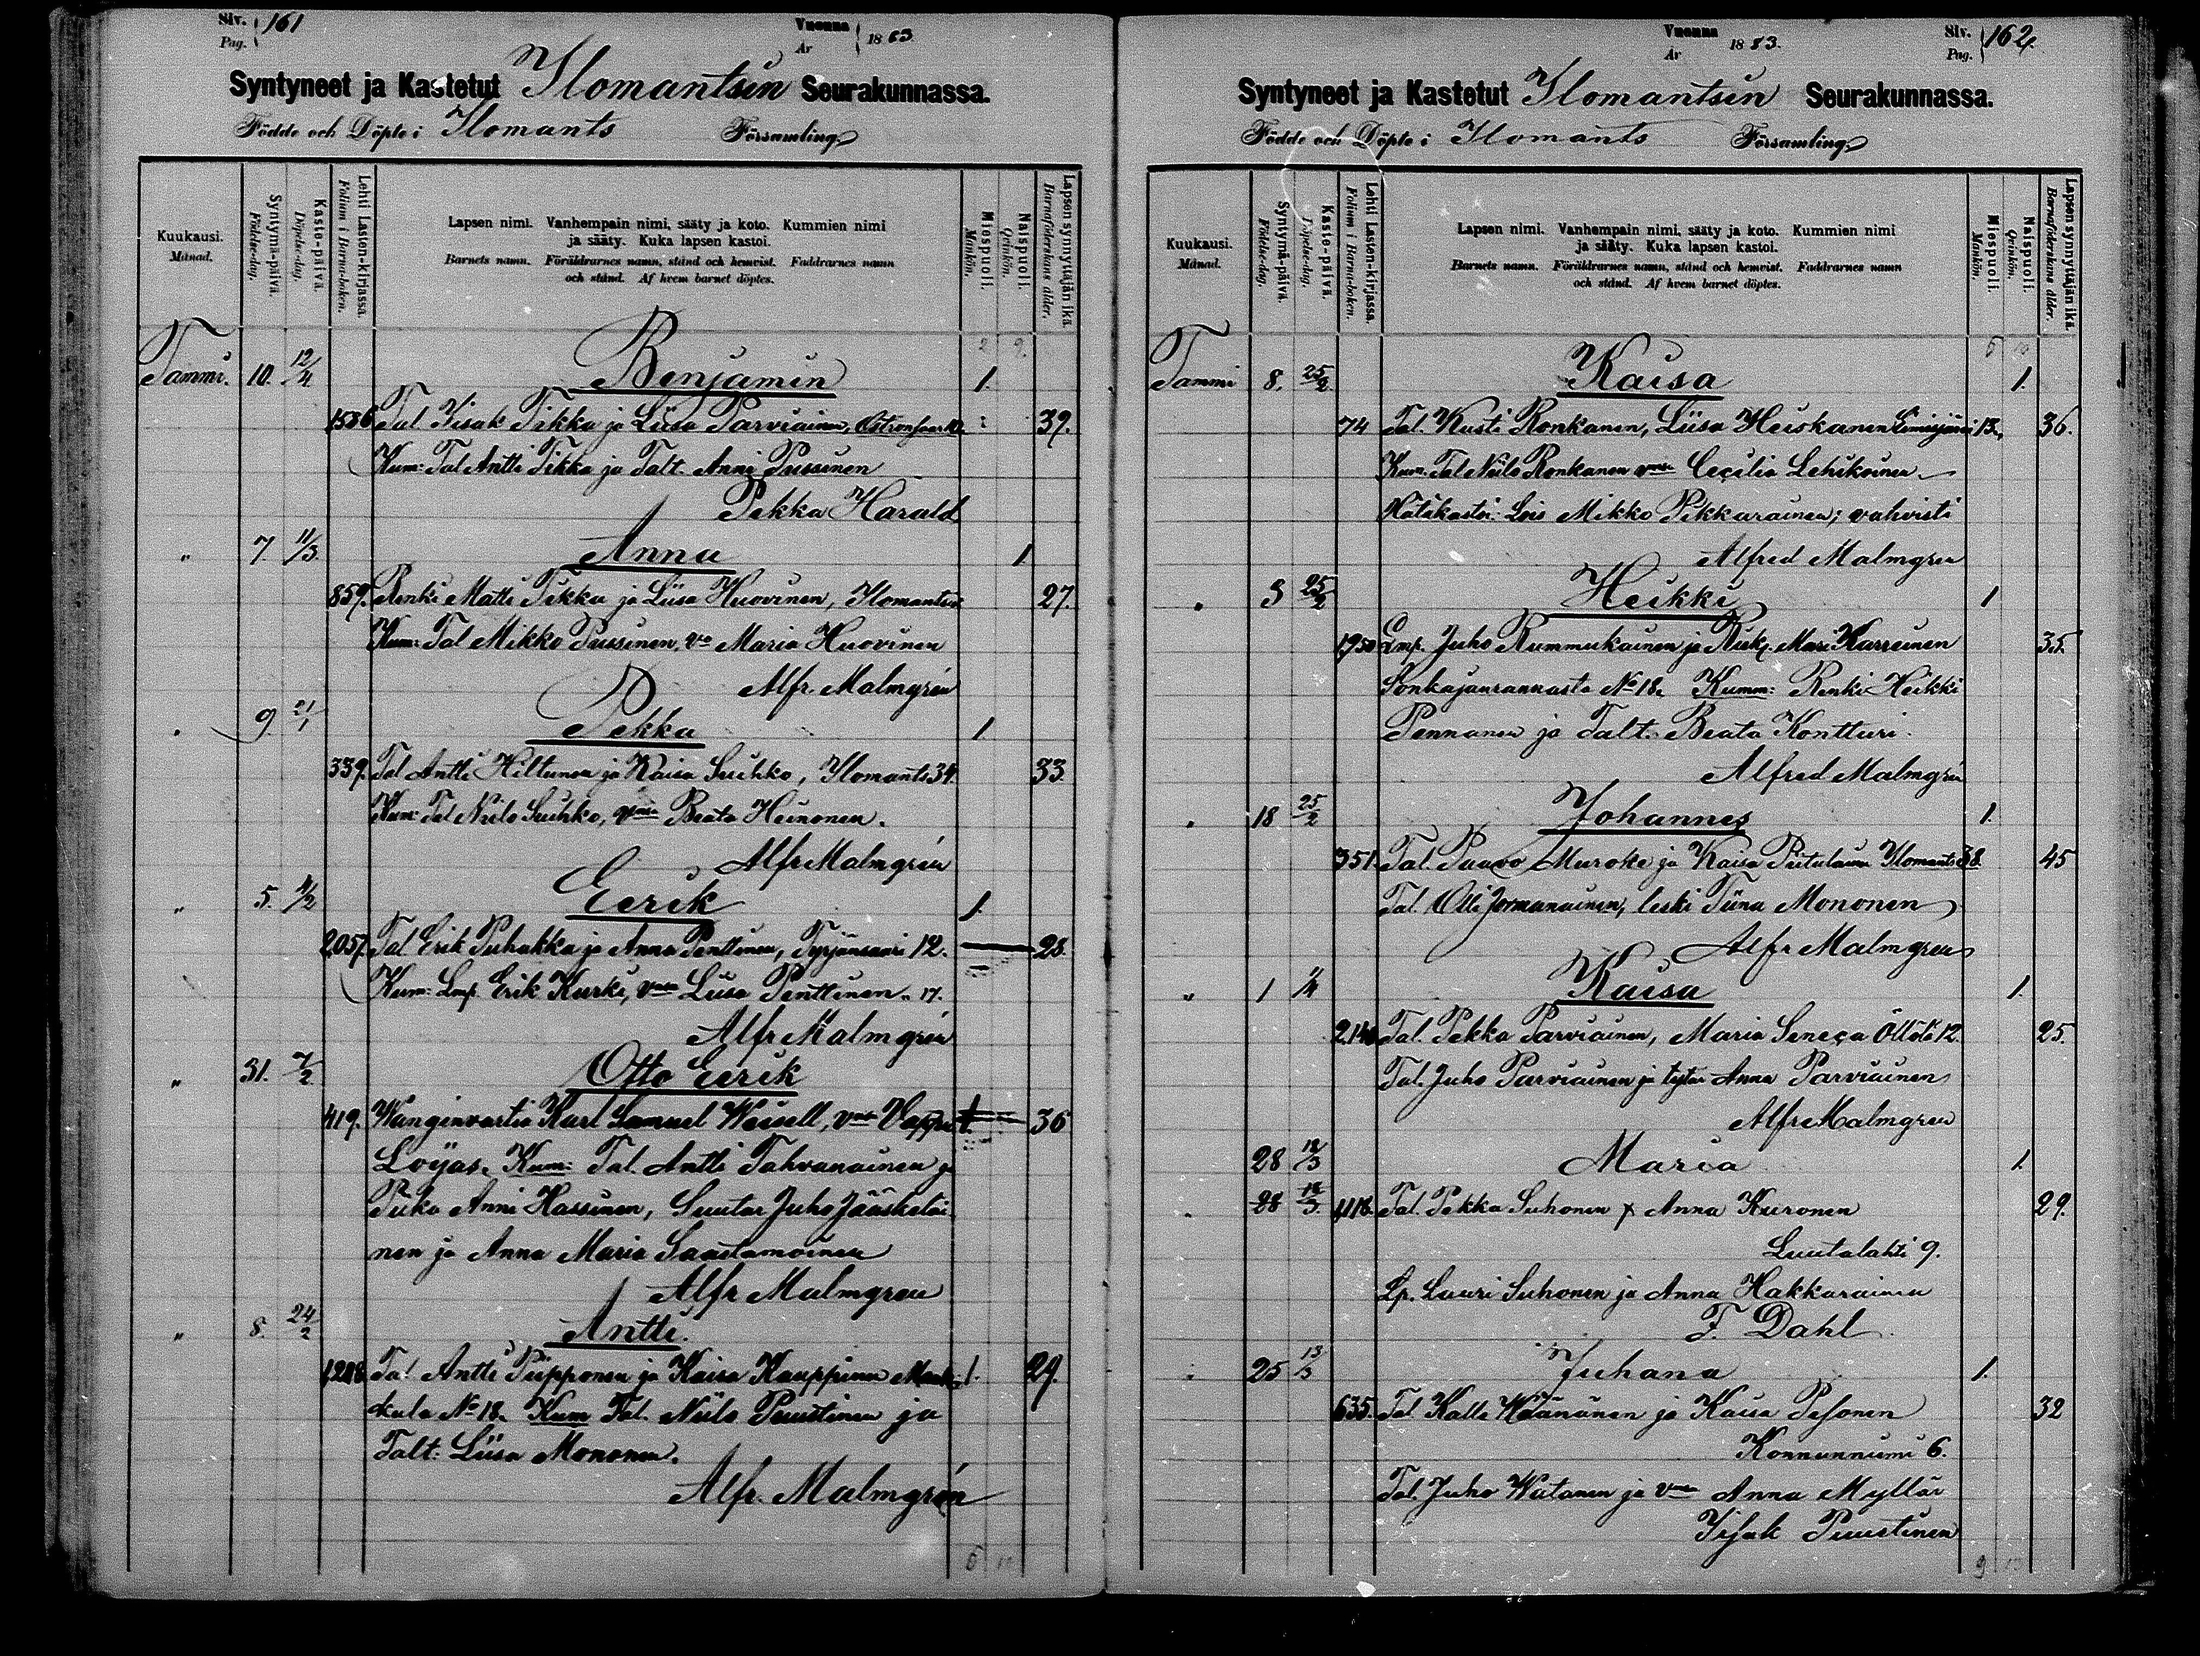 Siv. Pag. 161
Vuonna År 1883
Syntyneet ja Kastetut Ilomantsin Seurakunnassa.
Födde och Döpte i Ilomants Församling
Kuukausi. Månad.
Syntymä-päivä. Födelse-dag.
Kaste-päivä. Döpelse-dag.
Lehti Lasten-kirjassa. Folium i Barna-boken.
Lapsen nimi. Vanhempain nimi, sääty ja koto. Kummien nimi
ja sääty. Kuka lapsen kastoi.
Barnets namn. Föräldrarnes namn, stånd och hemvist. Faddrarnes namn
och stånd. Af hvem barnet döptes.
Miespuoli. Mankön.
Naispuoli. Qvinkön.
Lapsen synnyttäjän ikä. Barnaföderskans ålder.
Tammi. 10. 12/4 Benjamin 1.
1586 Tal Iisak Tikka ja Liisa Parviainen, 39.
Kum: Tal Antti Tikka ja Talt. Anni Pussinen
Pekka Harald
" 7 11/3 Anna 1.
859. Renki Matti Tikka ja Liisa Huovinen, Ilomantsi 27.
Kum: Tal Mikko Pussinen, vo Maria Huovinen
Alfr. Malmgrén
" 9. 21/1 Pekka 1
339. Tal Antti Hiltunen ja Kaisa Suhko, Ilomants 34. 33.
Kum: Tal Niilo Suhko, vmo Beata Heinonen.
Alfr Malmgrén
" 5. 4/2 Eerik 1.
2057. Tal Erik Puhakka ja Anna Penttinen, Tyrjänsaari 12. 28.
Kum: Lmp. Erik Kurki, vmo Liisa Penttinen " 17.
Alfr Malmgrén
" 31. 7/2 Otto Eerik
419. Wanginvartia Karl Samuel Weisell, vmo Vappu 1. 36
Löyas. Kum: Tal. Antti Tahvanainen ja
Piika Anni Hassinen, Suutar Juho Jääskeläi
nen ja Anna Maria Saastamoinen
Alfr Malmgren
" 8. 24/2 Antti.
1218 Tal Antti Piipponen ja Kaisa Kauppinen 1. 29.
kula No 18. Kum Tal. Niilo Puustinen ja
Talt: Liisa Mononen.
Alfr. Malmgrén
Siv. Pag. 162.
Vuonna År 1883.
Syntyneet ja Kastetut Ilomantsin Seurakunnassa.
Födde och Döpte i Ilomants Församling
Kuukausi. Månad.
Syntymä-päivä. Födelse-dag.
Kaste-päivä. Döpelse-dag.
Lehti Lasten-kirjassa. Folium i Barna-boken.
Lapsen nimi. Vanhempain nimi, sääty ja koto. Kummien nimi
ja sääty. Kuka lapsen kastoi.
Barnets namn. Föräldrarnes namn, stånd och hemvist. Faddrarnes namn
och stånd. Af hvem barnet döptes.
Miespuoli. Mankön.
Naispuoli. Qvinkön.
Lapsen synnyttäjän ikä. Barnaföderskans ålder.
Tammi 8. 25/2 Kaisa 1.
74 Tal. Kusti Ronkanen, Liisa Heiskanen 13. 36.
Kum. Tal Niilo Ronkanen vmo Ceçilia Lehikoinen
Hätäkastoi: Lois Mikko Pikkarainen; vahvisti
Alfred Malmgren
" 3 25/2 Heikki 1
1950 Lmp. Juho Rummukainen ja Mari Karreinen 35.
Sonkajanrannasta No 18. Kumm: Renki Heikki
Pennanen ja Talt. Beata Kontturi.
Alfred Malmgrén
" 18 25/2 Johannes 1.
351. Tal. Paavo Muroke ja Kaisa Piitulainen Ilomants 38. 45
Tal. Olli Jormanainen, leski Tiina Mononen
Alfr Malmgren
" 1 1/4 Kaisa 1.
214 Tal. Pekka Parviainen, Maria Seneça Öllölä 12. 25.
Tal. Juho Parviainen ja tytär Anna Parviainen
Alfr Malmgren
28 18/3 Maria 1.
" 28 18/3. 418. Tal. Pekka Suhonen & Anna Kuronen 29.
Luutalahti 9.
Lp. Lauri Suhonen ja Anna Hakkarainen
F. Dahl.
" 25 13/3 Juhana 1.
635. Tal. Kalle Wäänänen ja Kaisa Pesonen 32
Konnunniemi 6.
Tal. Juho Watanen ja vmo Anna Myllär
Iisak Puustinen